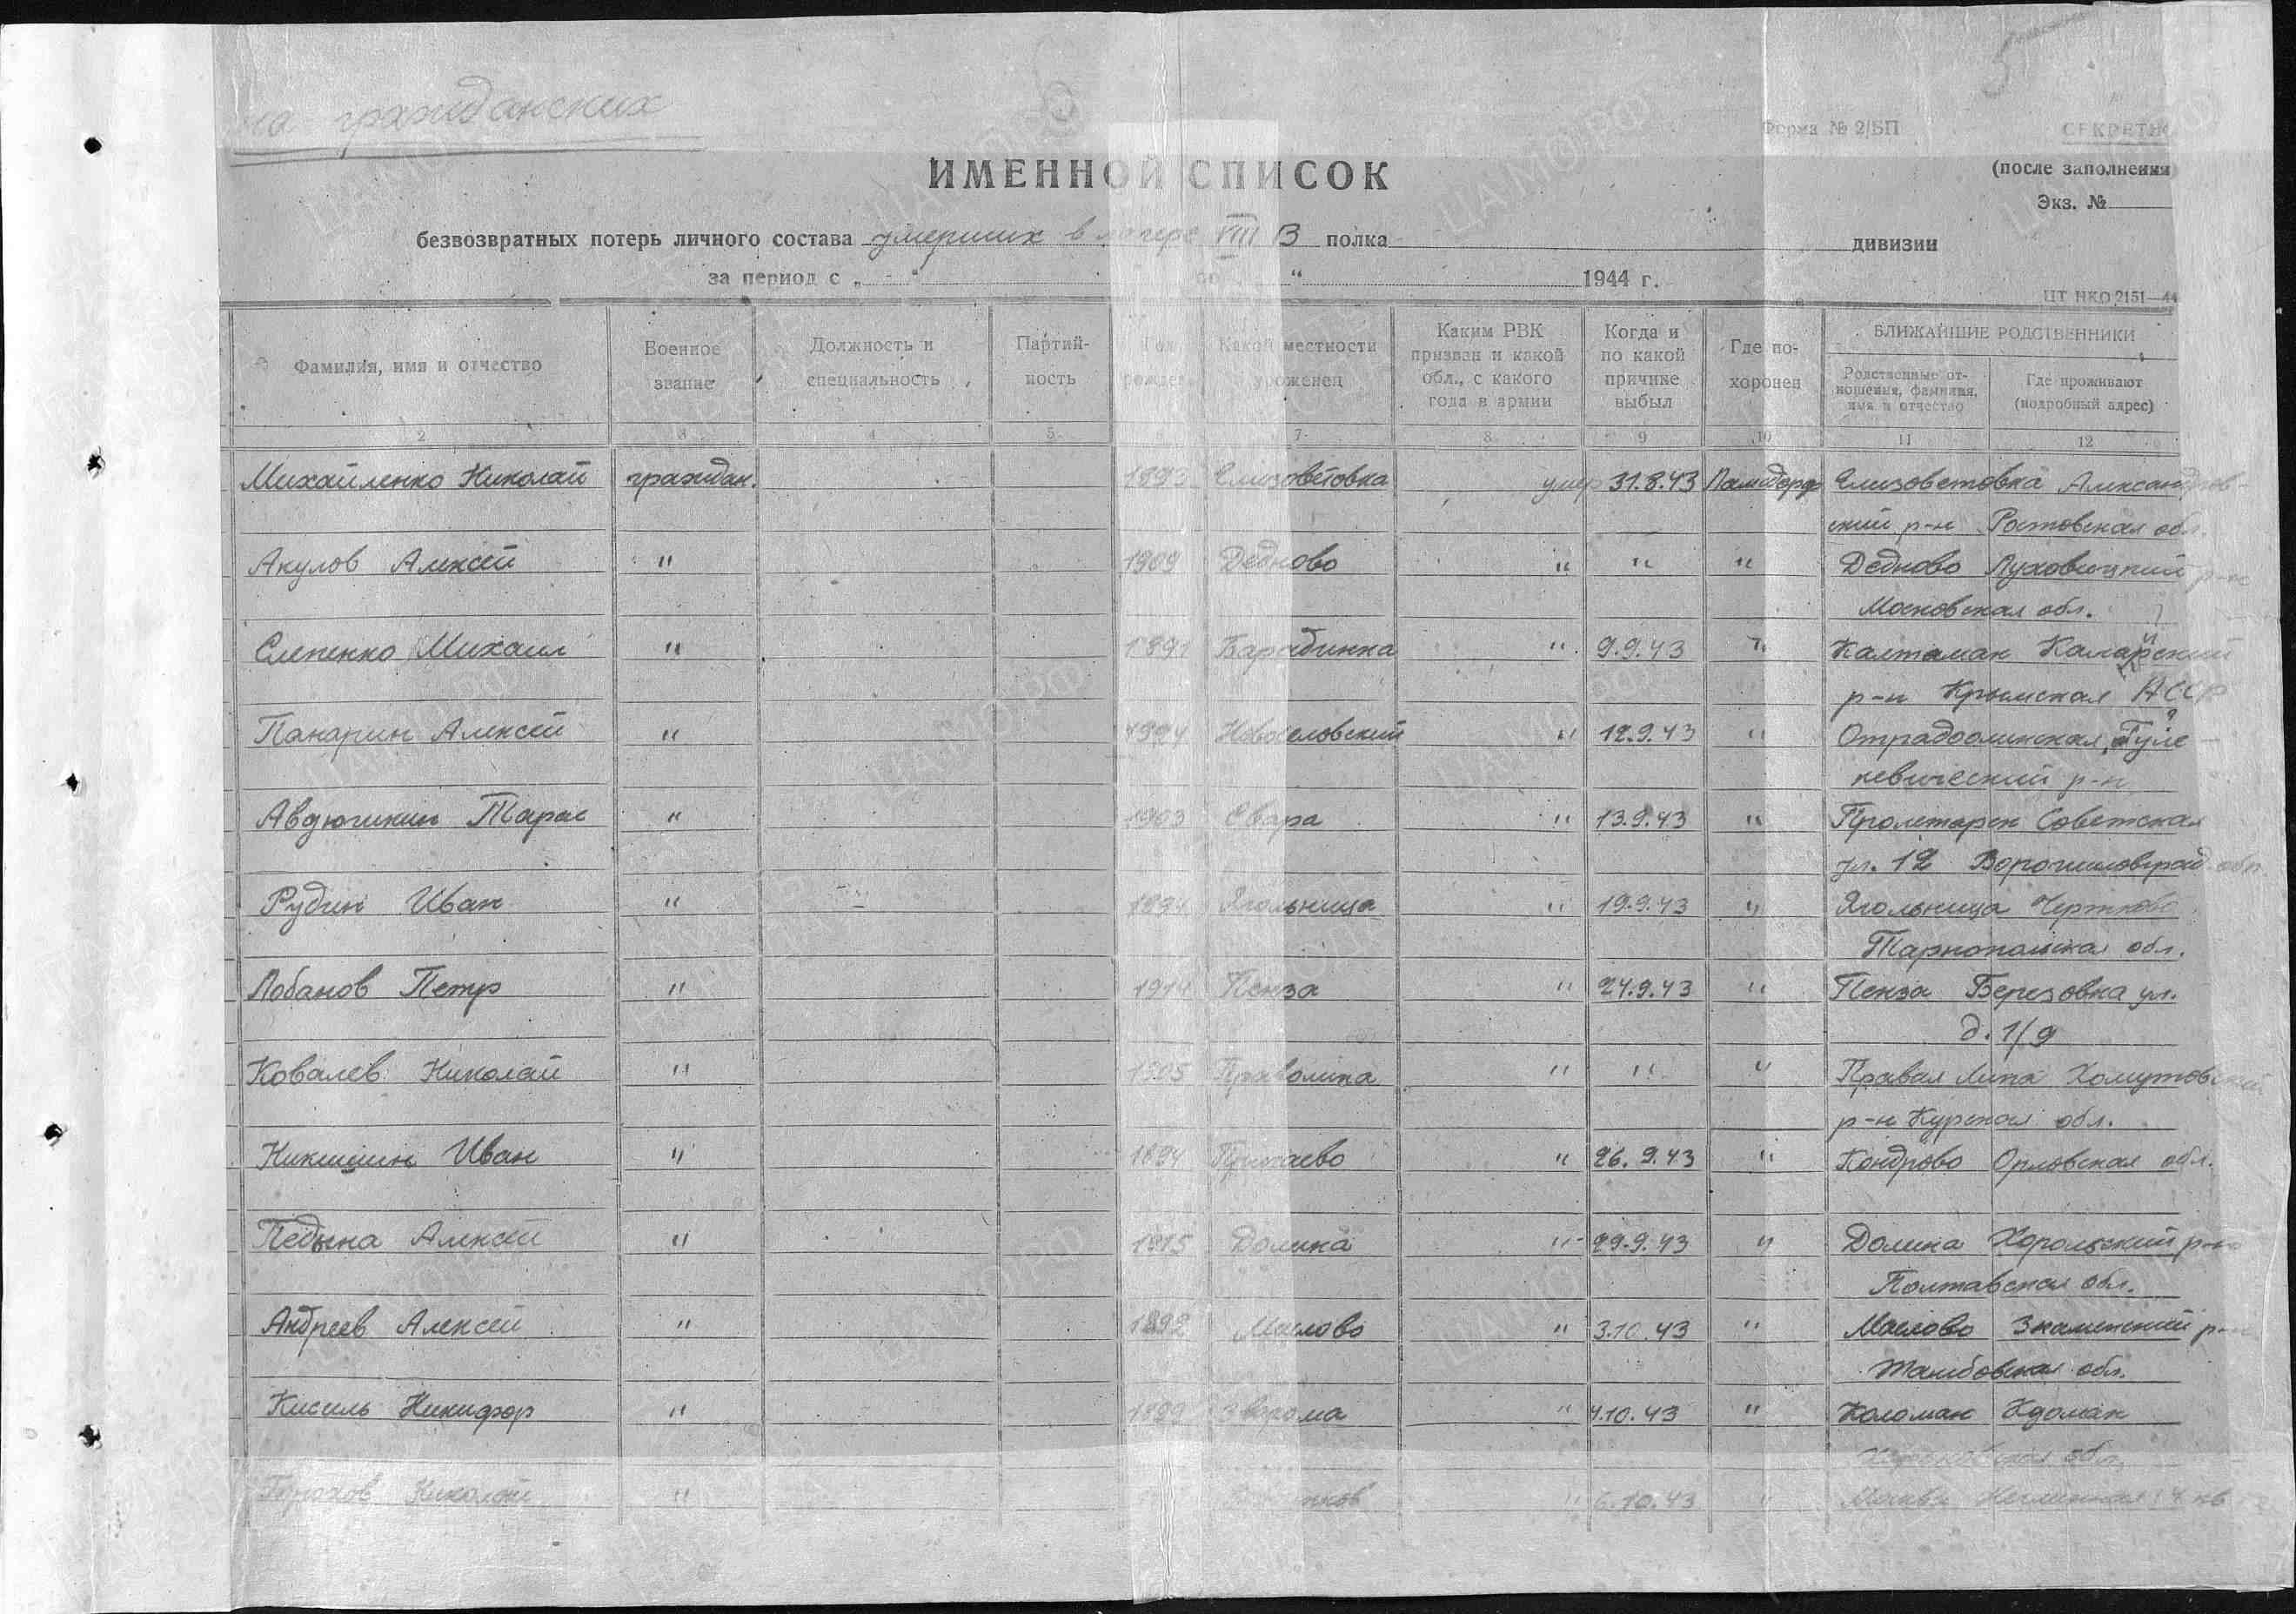 на гражданских
Форма № 2/БП
СЕКРЕТНО
ИМЕННОЙ СПИСОК
(после заполнения)
Экз. №
безвозвратных потерь личного состава умерших в лагере VIII В полка дивизии
за период с „ - “ по „ “ 1944 г.
ЦТ НКО 2151—44
Фамилия, имя и отчество
Военное звание
Должность и специальность
Партийность
Год рожден.
Какой местности уроженец
Каким РВК призван и какой обл., с какого года в армии
Когда и по какой причине выбыл
Где похоронен
БЛИЖАЙШИЕ РОДСТВЕННИКИ
Родственные отношения, фамилия, имя и отчество
Где проживают (подробный адрес)
2 3 4 5 7 8 9 10 11 12
Михайленко Николай граждан. 1893 Елизоветовка умер 31.8.43 Ламсдорф Елизоветовка Александров-
ский р-н Ростовская обл.
Акулов Алексей " 1909 Дедново " " " Дедново Луховицкий р-н
Московская обл.
Слепенко Михаил " 1891 Барабинка " 9.9.43 " Калтаман
р-н Крымская АССР
Панарин Алексей " Новоселовский " 12.9.43 "
кевический р-н
Авдюгикин Тарас " 1903 Свара " 13.9.43 " Пролетарск Советская
ул. 12 Ворошиловград. обл.
Рудин Иван " 1894 Ягольница " 19.9.43 " Ягольница Чертково
Тарнопольская обл.
Лобанов Петр " 1914 Пенза " 24.9.43 " Пенза Березовка ул.
д. 1/9
Ковалев Николай " 1905 Праволипа " " " Правая Липа Хомутовский
р-н Курская обл.
Никишин Иван " 1894 " 26.9.43 " Кондрово Орловская обл.
Педына Алексей " 1915 Долина " 29.9.43 " Долина Хорольский р-н
Полтавская обл.
Андреев Алексей " 1892 Маслово " 3.10.43 " Маслово Знаменский р-н
Тамбовская обл.
Кисиль Никифор " 1899 " 4.10.43 " Коломак Кдомак
Харьковская обл.
Николай " " 6.10.43 " Москва Неглинная 14 кв